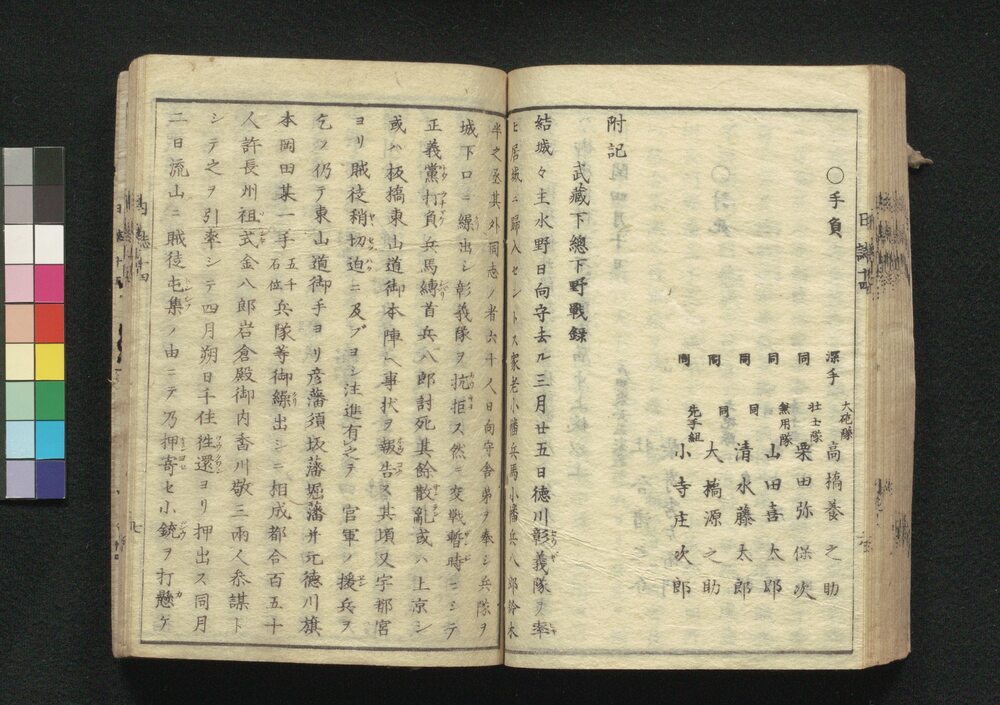 ○手負
深手 大砲隊 高橋養之助
同 壮士隊 栗田弥保次
同 無用隊 山田喜太郎
同 同 清水藤太郎
同 同 大橋源之助
同 先手組 小寺庄次郎
附記
武藏下總下野戰録
結城々主水野日向守去ル三月廿五日德川彰義隊ヲ率
ヒ居城ニ歸入セントス家老小幡兵馬小幡兵八郎鈴木
半之丞其外同志ノ者六十人日向守舎弟ヲ奉シ兵隊ヲ
城下口ニ繰出シ彰義隊ヲ抗拒ス然ニ交戰暫時ニシテ
正義黨打負兵馬縛首兵八郎討死其餘散亂或ハ上京シ
或ハ板橋東山道御本陣ヘ事状ヲ報告ス其頃又宇都宮
ヨリ賊徒稍切迫ニ及ブヨシ注進有之テ官軍ノ援兵ヲ
乞フ仍テ東山道御手ヨリ彦藩須坂藩堀藩并元德川旗
本岡田某一手五千石位兵隊等御繰出シニ相成都合百五十
人許長州祖式金八郎岩倉殿御内香川敬三兩人参謀ト
シテ之ヲ引率シテ四月朔日千住徃還ヨリ押出ス同月
二日流山ニ賊徒屯集ノ由ニテ乃押寄セ小銃ヲ打懸ケ